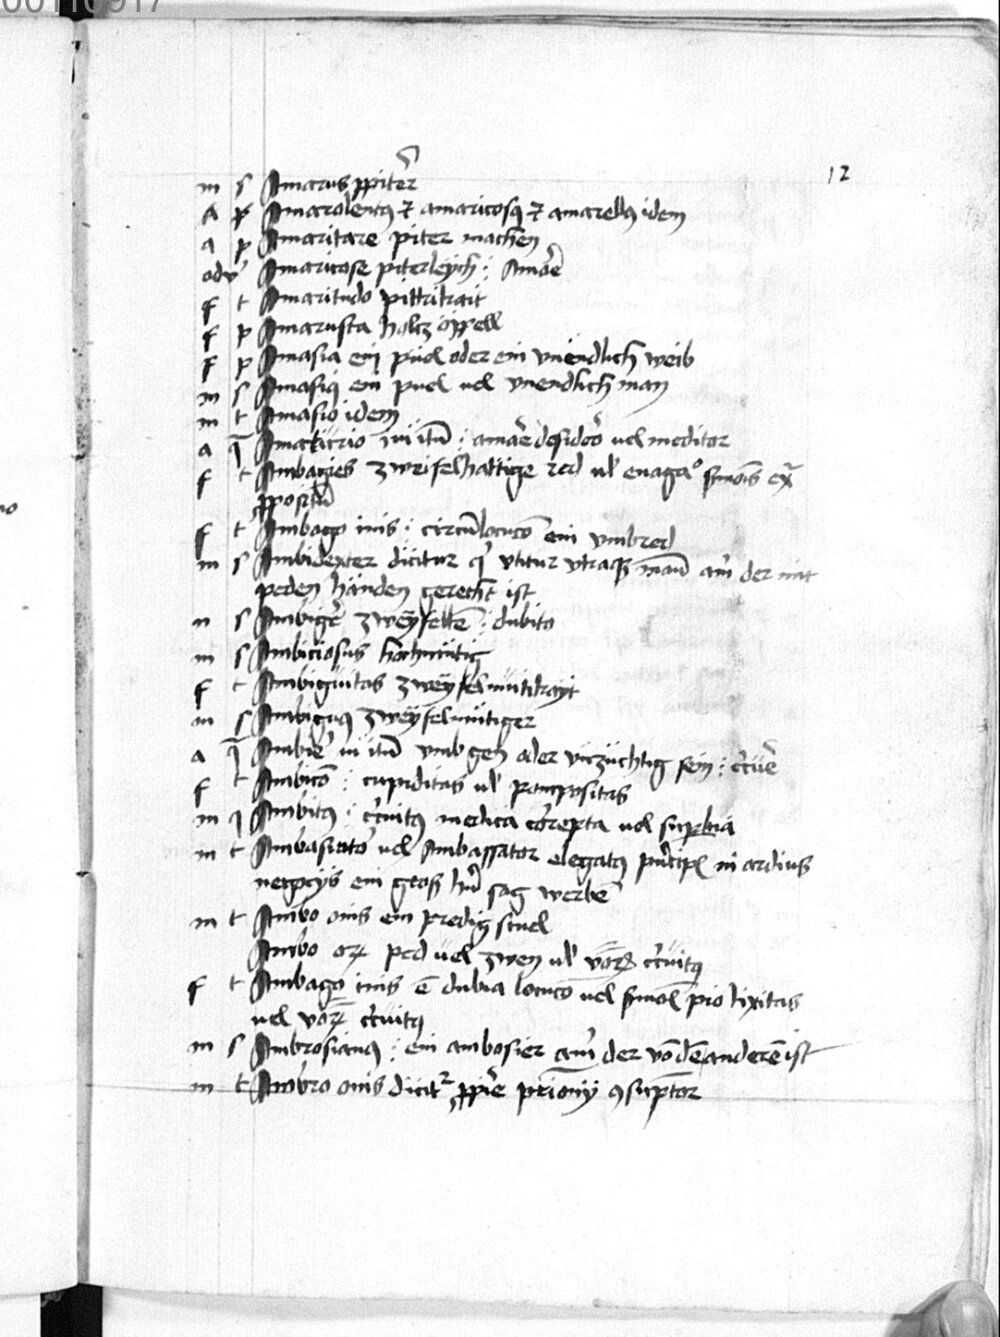 12
m s Amarus ppiter
A p Amarolentus et amaricosus et amarellus idem
a p Amaritare piter machen
adv Amaricose piterleych : Amare
f t Amaritudo pittrikait
f p Amarusta holcz öppell
f p Amasia ein puel oder ein vnendlich weib
m s Amasius ein puel vel vnendlich man
m t Amasio idem
a q Amaturio iui itum : amare desidero vel meditor
f t Ambages zweifelhaftige red vel
f t Ambago inis : circumlocucio ein vmbred
m s Ambidexter dicitur qui vtitur vtraque manu am der mit
peden händen gerecht ist
n s Ambigere zweyfellen : dubito
m s Ambiciosus hochmütig
f t Ambiguitas zweyfelmütikayt
m s Ambiguus zweyfelmütiger
a q Ambire iui itum vmb gen oder vnzüchtig sein : circuire
f t Ambicio : cupiditas vel pompositas
m q Ambitus : circuitus media correpta vel superbia
m t Ambasiator vel Ambassator elegatus principis in arduis
negocys ein gros her sag werben
m t Ambo onis ein predig stuel
Ambo orum ped vel zwen vel circuitus
f t Ambago inis est dubia locucio vel prolixitas
vel circuitus
m s Ambrosianus : ein ambosier am der von dem anderen ist
m t Ambro onis dicitur proprie consumptor